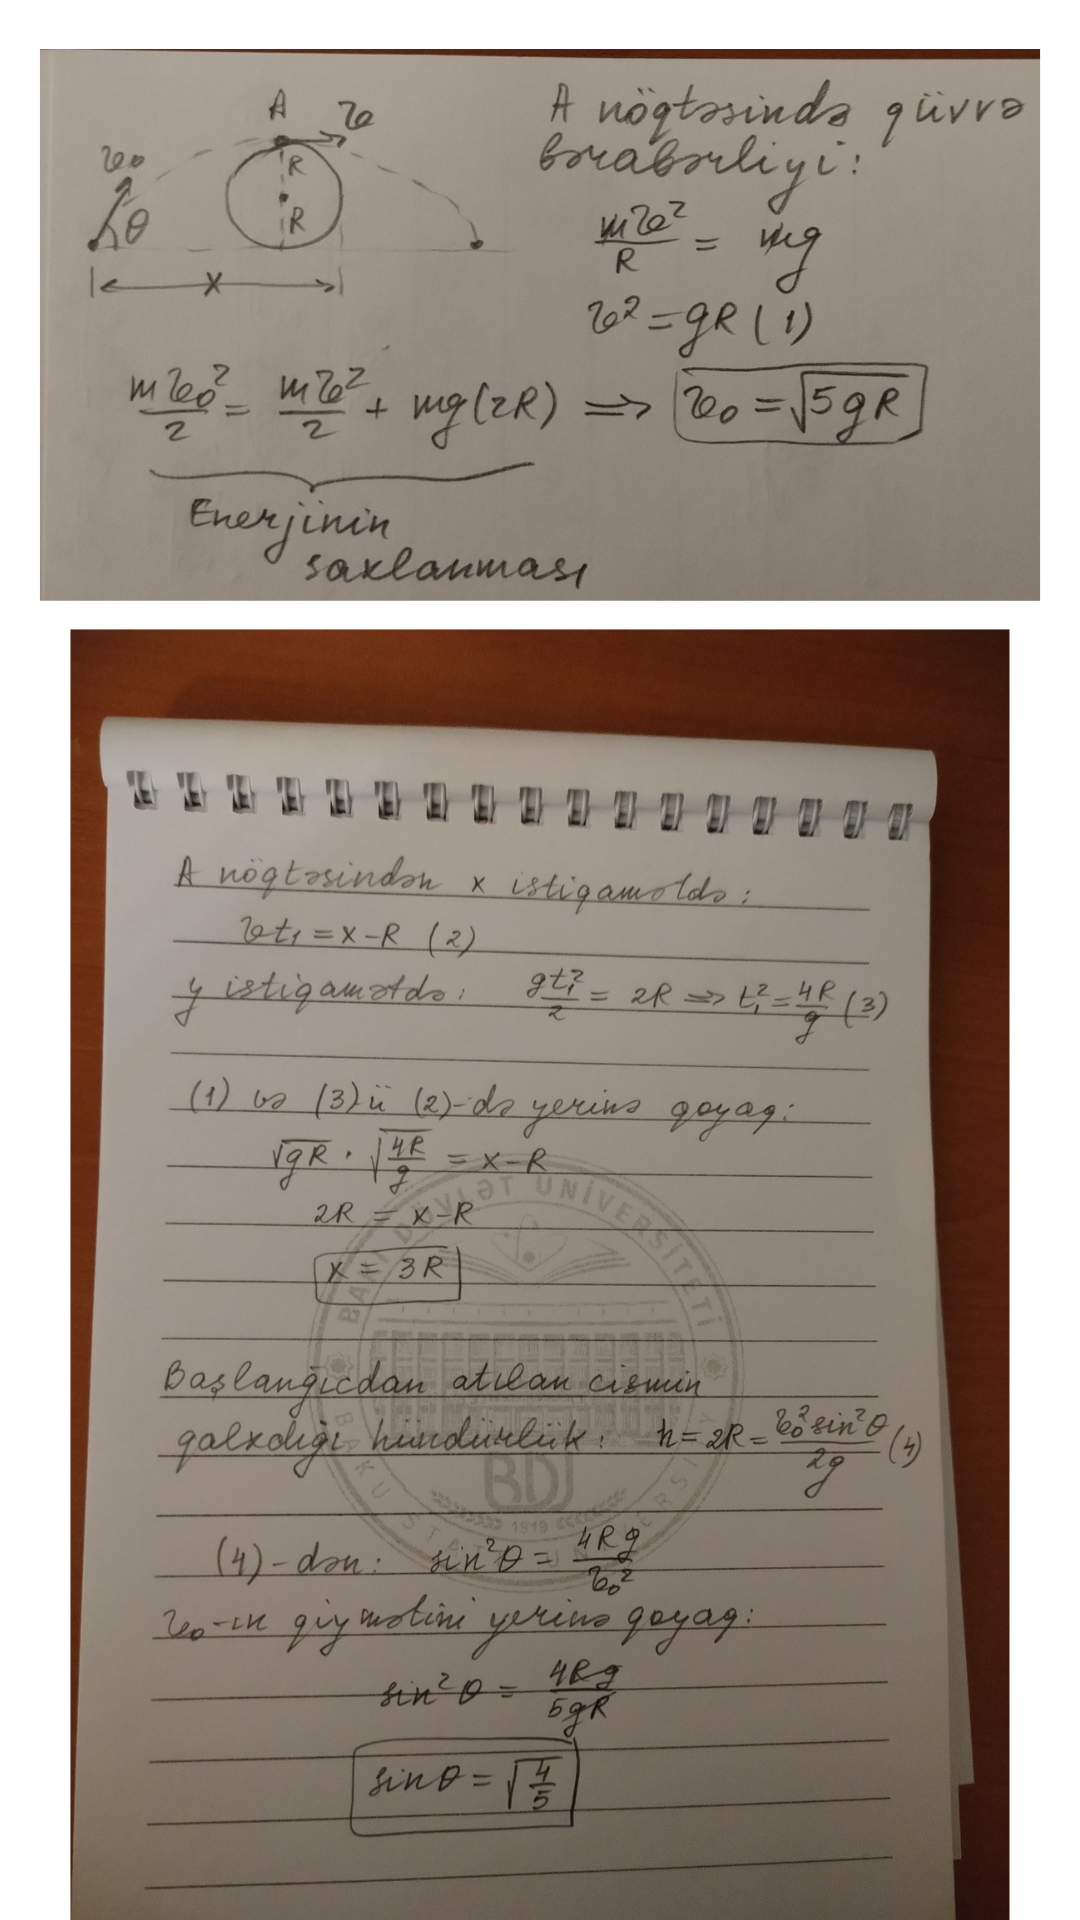 A
v
v₀
R
θ
R
x
A nöqtəsində qüvvə
bərabərliyi:
mv²/R = mg
v² = gR (1)
mv₀²/2 = mv²/2 + mg(2R) ⇒ v₀ = √5gR
Enerjinin
saxlanması
A nöqtəsindən x istiqamətdə:
vt₁ = x-R (2)
y istiqamətdə: gt₁²/2 = 2R ⇒ t₁² = 4R/g (3)
(1) və (3)-ü (2)-də yerinə qoyaq:
√gR · √4R/g = x-R
2R = x-R
x = 3R
Başlanğıcdan atılan cismin
qalxdığı hündürlük: h = 2R = v₀² sin²θ/2g (4)
(4)-dən: sin²θ = 4Rg/v₀²
v₀-ın qiymətini yerinə qoyaq:
sin²θ = 4Rg/5gR
sinθ = √4/5
BAKI DÖVLƏT UNİVERSİTETİ
BAKU STATE UNIVERSITY
BDU
1919